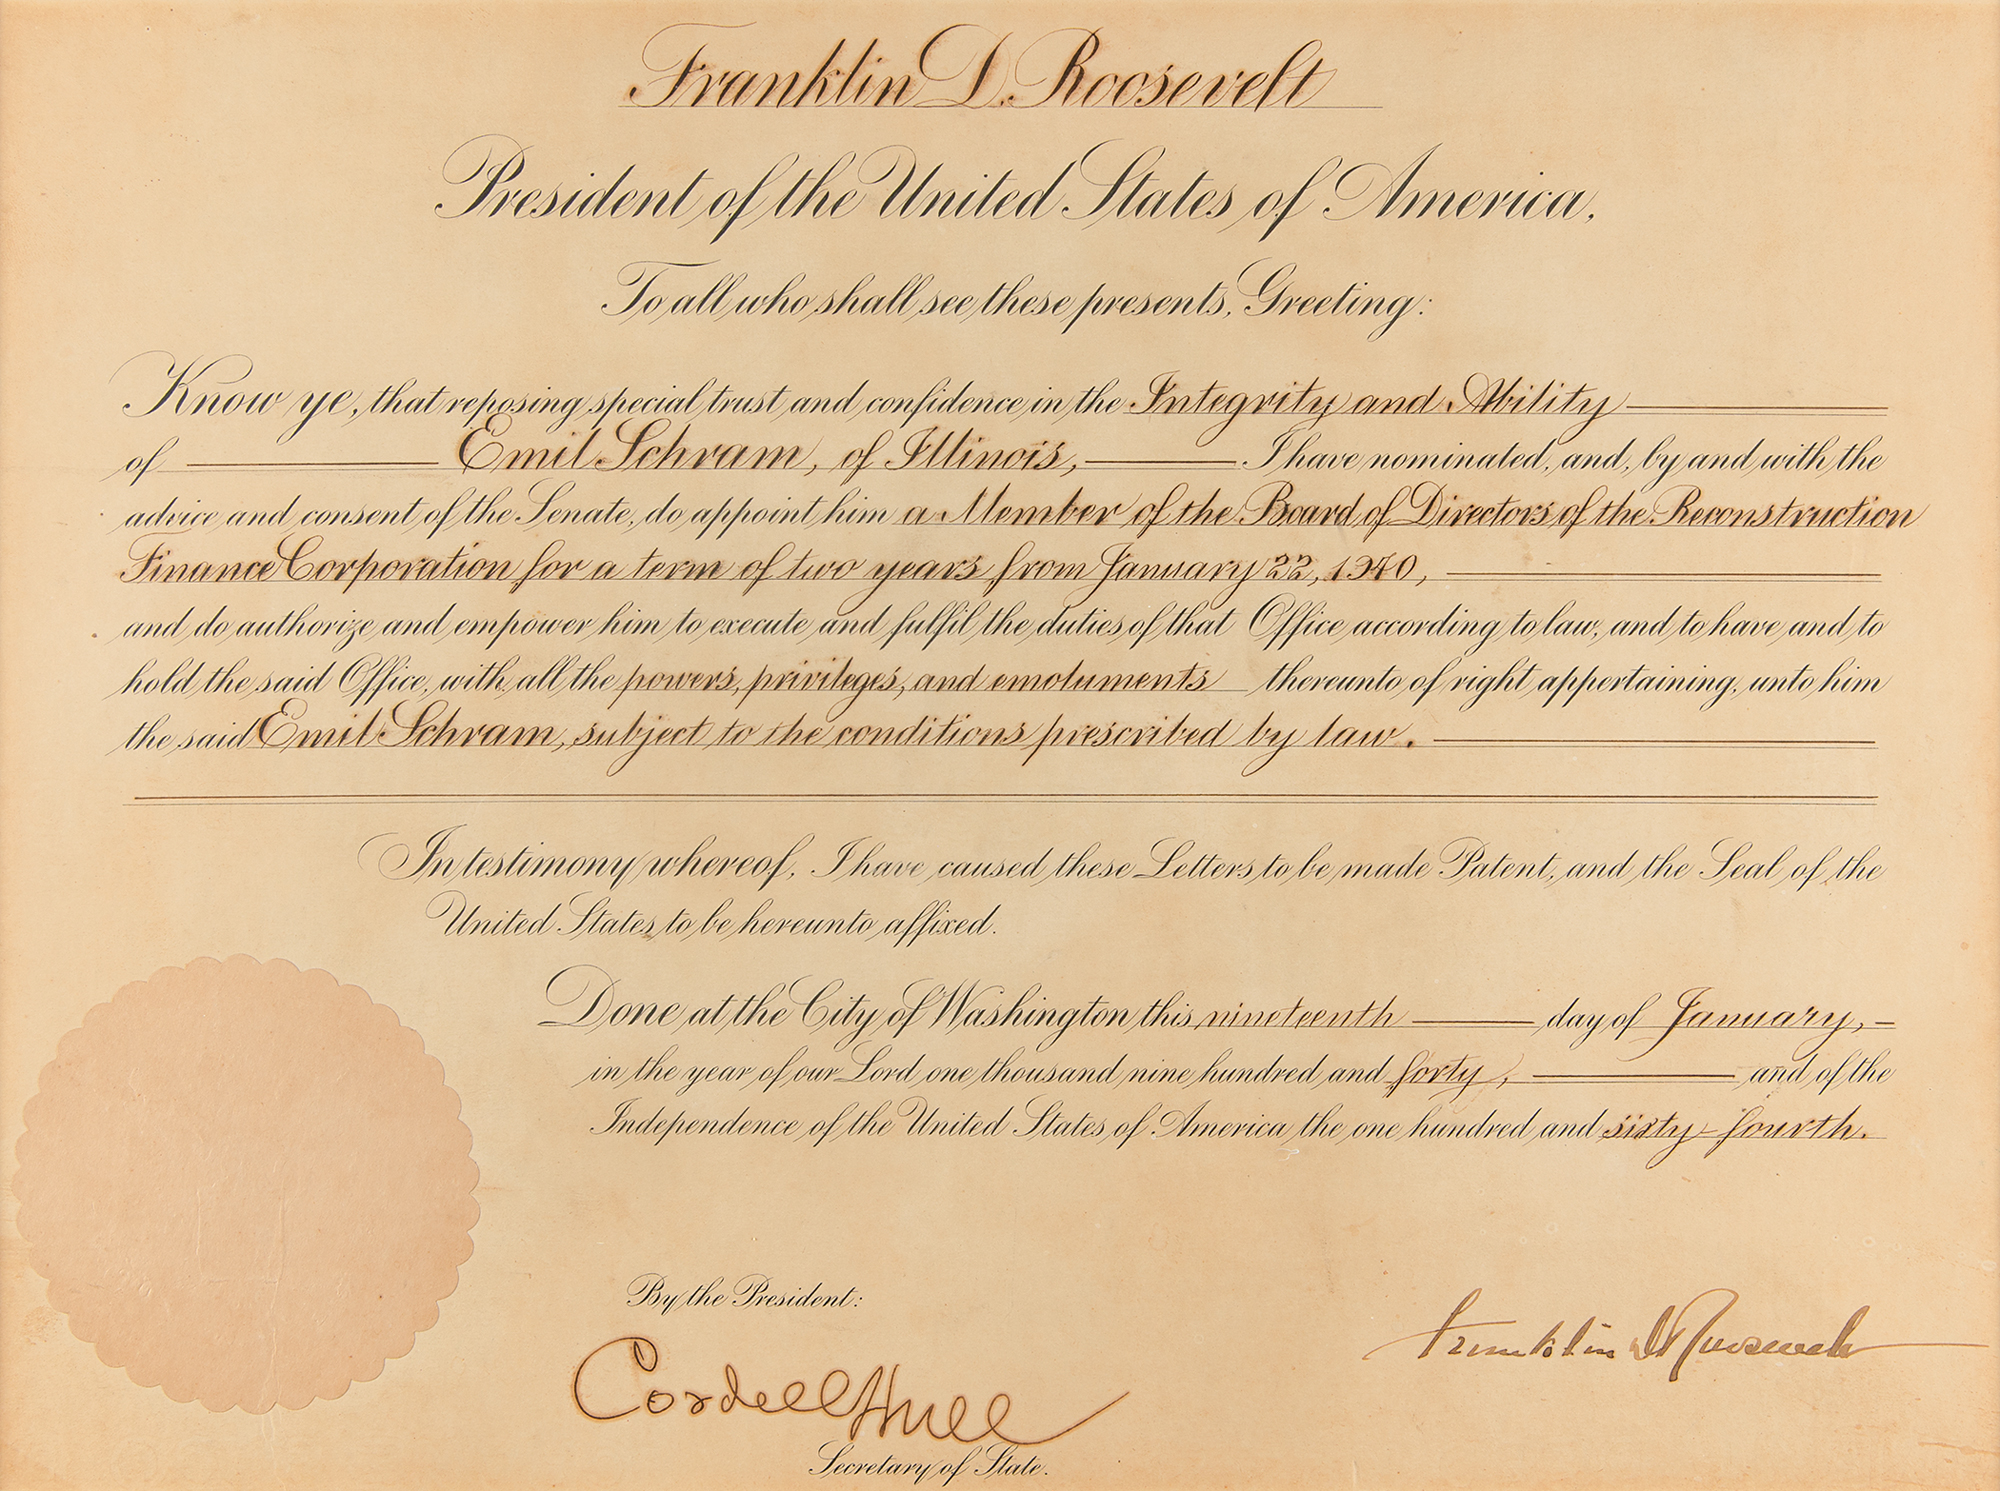 Franklin D. Roosevelt
President of the United States of America,
To all who shall see these presents, Greeting:
Know ye, that reposing special trust and confidence in the Integrity and Ability
of Emil Schram, of Illinois, I have nominated, and, by and with the
advice and consent of the Senate, do appoint him a Member of the Board of Directors of the Reconstruction
Finance Corporation for a term of two years from January 22, 1940,
and do authorize and empower him to execute and fulfil the duties of that Office according to law, and to have and to
hold the said Office, with all the powers, privileges, and emoluments thereunto of right appertaining, unto him
the said Emil Schram, subject to the conditions prescribed by law.
In testimony whereof, I have caused these Letters to be made Patent, and the Seal of the
United States to be hereunto affixed.
Done at the City of Washington this nineteenth day of January,
in the year of our Lord one thousand nine hundred and forty, and of the
Independence of the United States of America the one hundred and sixty-fourth.
By the President:
Franklin D Roosevelt
Cordell Hull
Secretary of State.